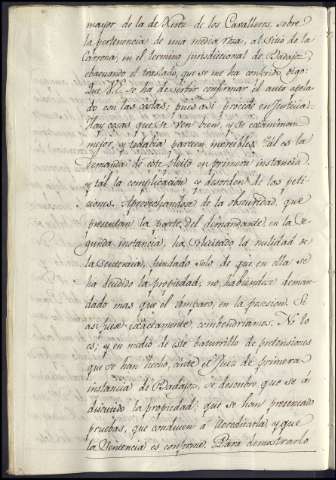 mayor de la de Xerez de los Cavalleros, sobre
la pertenencia de una media Yuxa, al sitio de la
en el termino jurisdiccional de Badajoz
evacuando el traslado, que se me ha conferido, digo:
Que V.E. se ha de servir confirmar el auto apela
do con las costas; pues asi procede en Justicia:
Hay cosas que se ven bien, y se examinan
mejor, y todavia parecen increibles. Tal es la
demanda de este Pleito en primera instancia,
y tal la complicacion y desorden de las peti
ciones. Aprovechandose de la obscuridad, que
presentan la parte del demandante en la se
gunda instancia, ha suscitado la nulidad de
la Sentencia, fundado solo de que en ella se
ha decidido la propiedad, no habiendose deman
dado mas que el amparo en la posesion. Si
asi fuese exactamente, convendriamos. No lo
es; y en medio de este baturrillo de pretensiones
que se han hecho, ante el Juez de primera
instancia de Badajoz, se descubre que se á
discutido la propiedad: que se han presentado
pruebas, que conducen á acreditarla; y que
la Sentencia es conforme. Para demostrarlo